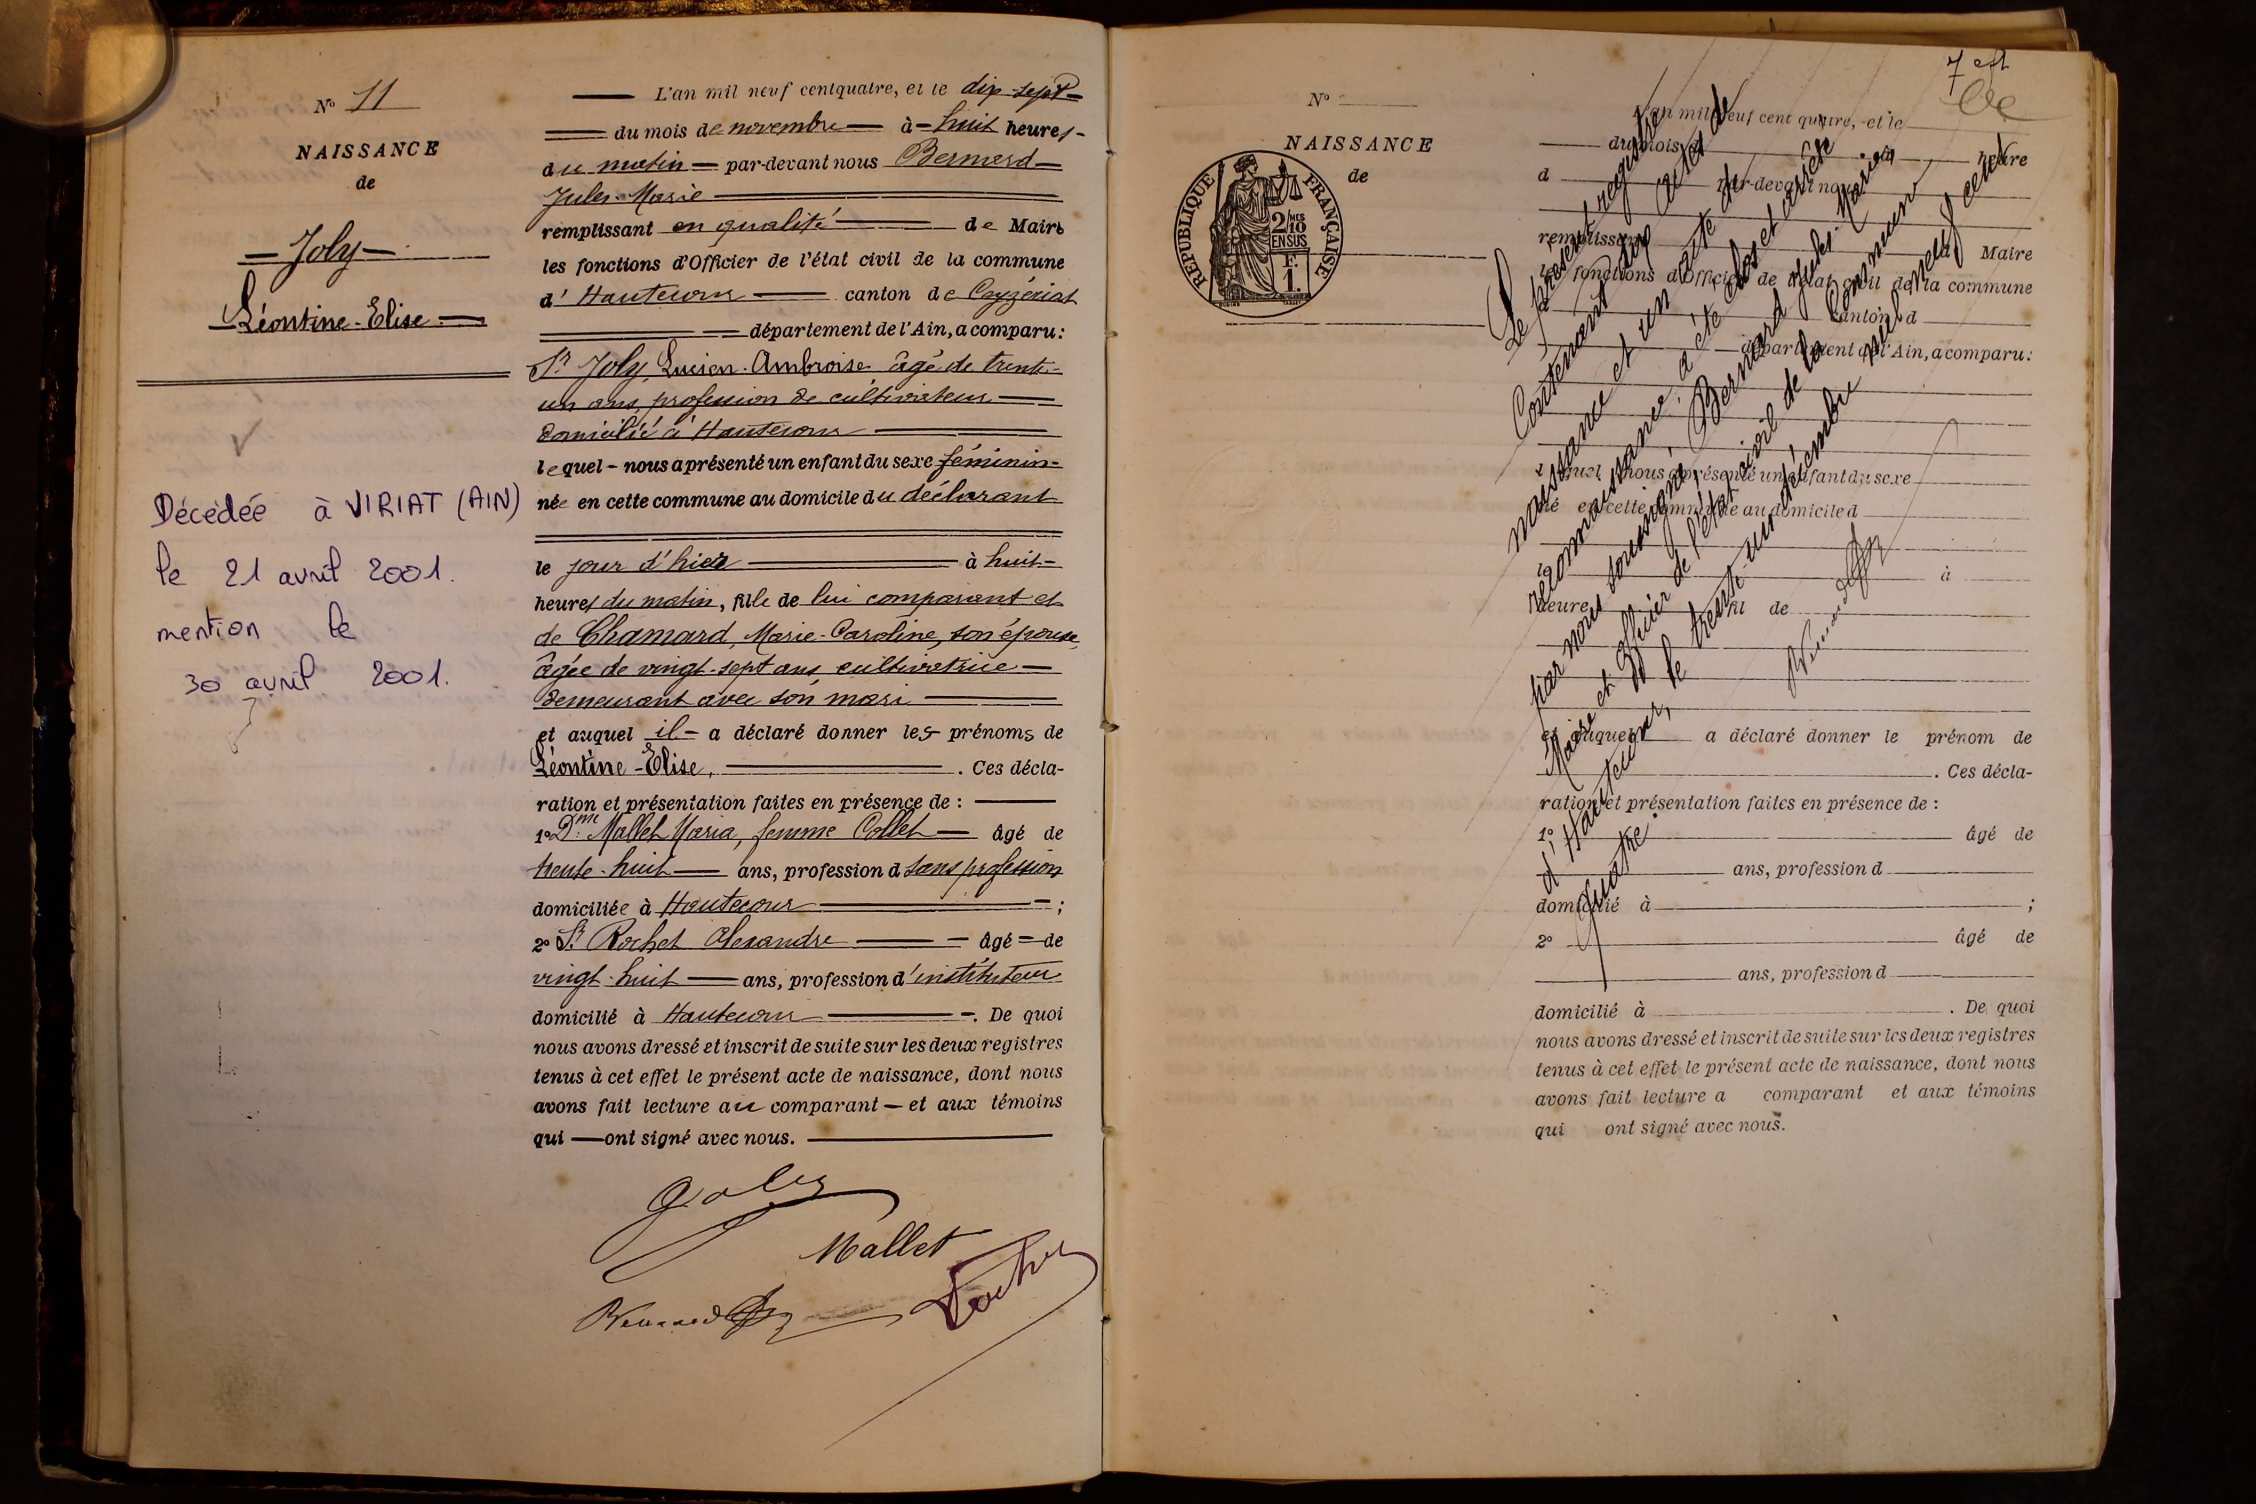 N° 11
NAISSANCE
de
Joly
Léontine-Elise
Décédée à VIRIAT (AIN)
le 21 avril 2001.
mention le
30 avril 2001.
L'an mil neuf cent quatre, et le dix-sept
du mois de novembre à huit heures
du matin par-devant nous Bernard
Jules-Marie
remplissant en qualité de Maire
les fonctions d'Officier de l'état civil de la commune
d'Hautecour canton de Ceyzériat
département de l'Ain, a comparu:
Sr Joly, Lucien-Ambroise âgé de trente-
un ans, profession de cultivateur
domicilié à Hautecour
lequel nous a présenté un enfant du sexe féminin
née en cette commune au domicile du déclarant
le jour d'hier à huit
heures du matin, fille de lui comparant et
de Chamard, Marie-Caroline, son épouse,
âgée de vingt-sept ans cultivatrice
demeurant avec son mari
et auquel il a déclaré donner les prénoms de
Léontine-Elise, . Ces décla-
ration et présentation faites en présence de :
1° Dme Mallet Maria, femme Collet âgé de
trente-huit ans, profession d sans profession
domiciliée à Hautecour ;
2° Sr Rochet Alexandre âgé de
vingt-huit ans, profession d'instituteur
domicilié à Hautecour . De quoi
nous avons dressé et inscrit de suite sur les deux registres
tenus à cet effet le présent acte de naissance, dont nous
avons fait lecture au comparant et aux témoins
qui ont signé avec nous.
Joly
Mallet
Bernard
Rochet
7 est
N°
NAISSANCE
de
RÉPUBLIQUE FRANÇAISE
2/10 MES
EN SUS
F.
1.
L'an mil neuf cent quatre, et le
du mois d à heure
d par-devant nous
remplissant Maire
les fonctions d'Officier de l'état civil de la commune
d canton d
département de l'Ain, a comparu:
lequel nous a présenté un enfant du sexe
né en cette commune au domicile d
le à
heure fil de
et auquel a déclaré donner le prénom de
. Ces décla-
ration et présentation faites en présence de :
1° âgé de
ans, profession d
domicilié à ;
2° âgé de
ans, profession d
domicilié à . De quoi
nous avons dressé et inscrit de suite sur les deux registres
tenus à cet effet le présent acte de naissance, dont nous
avons fait lecture a comparant et aux témoins
qui ont signé avec nous.
Le présent registre
Contenant actes de
naissance et un acte de
reconnaissance, a été clos et arrêté
par nous soussigné, Bernard Jules-Marie,
Maire et Officier de l'état civil de la Commune
d'Hautecour, le trente-un décembre mil neuf cent
quatre.
Bernard